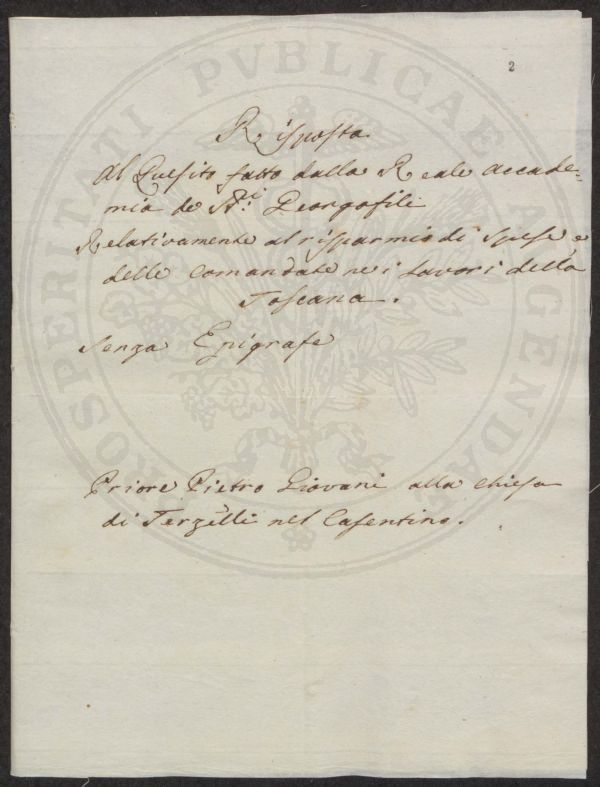 2
Risposta
Al Quesito fatto dalla Reale Accade=
mia de Sri: Georgofili
Relativamente al risparmio di spese e
delle comandate nei lavori della
Toscana.
Senza Epigrafe
Priore Pietro Giovani alla chiesa
di Terzelli nel Casentino.
PROSPERITATI PVBLICAE AVGENDAE